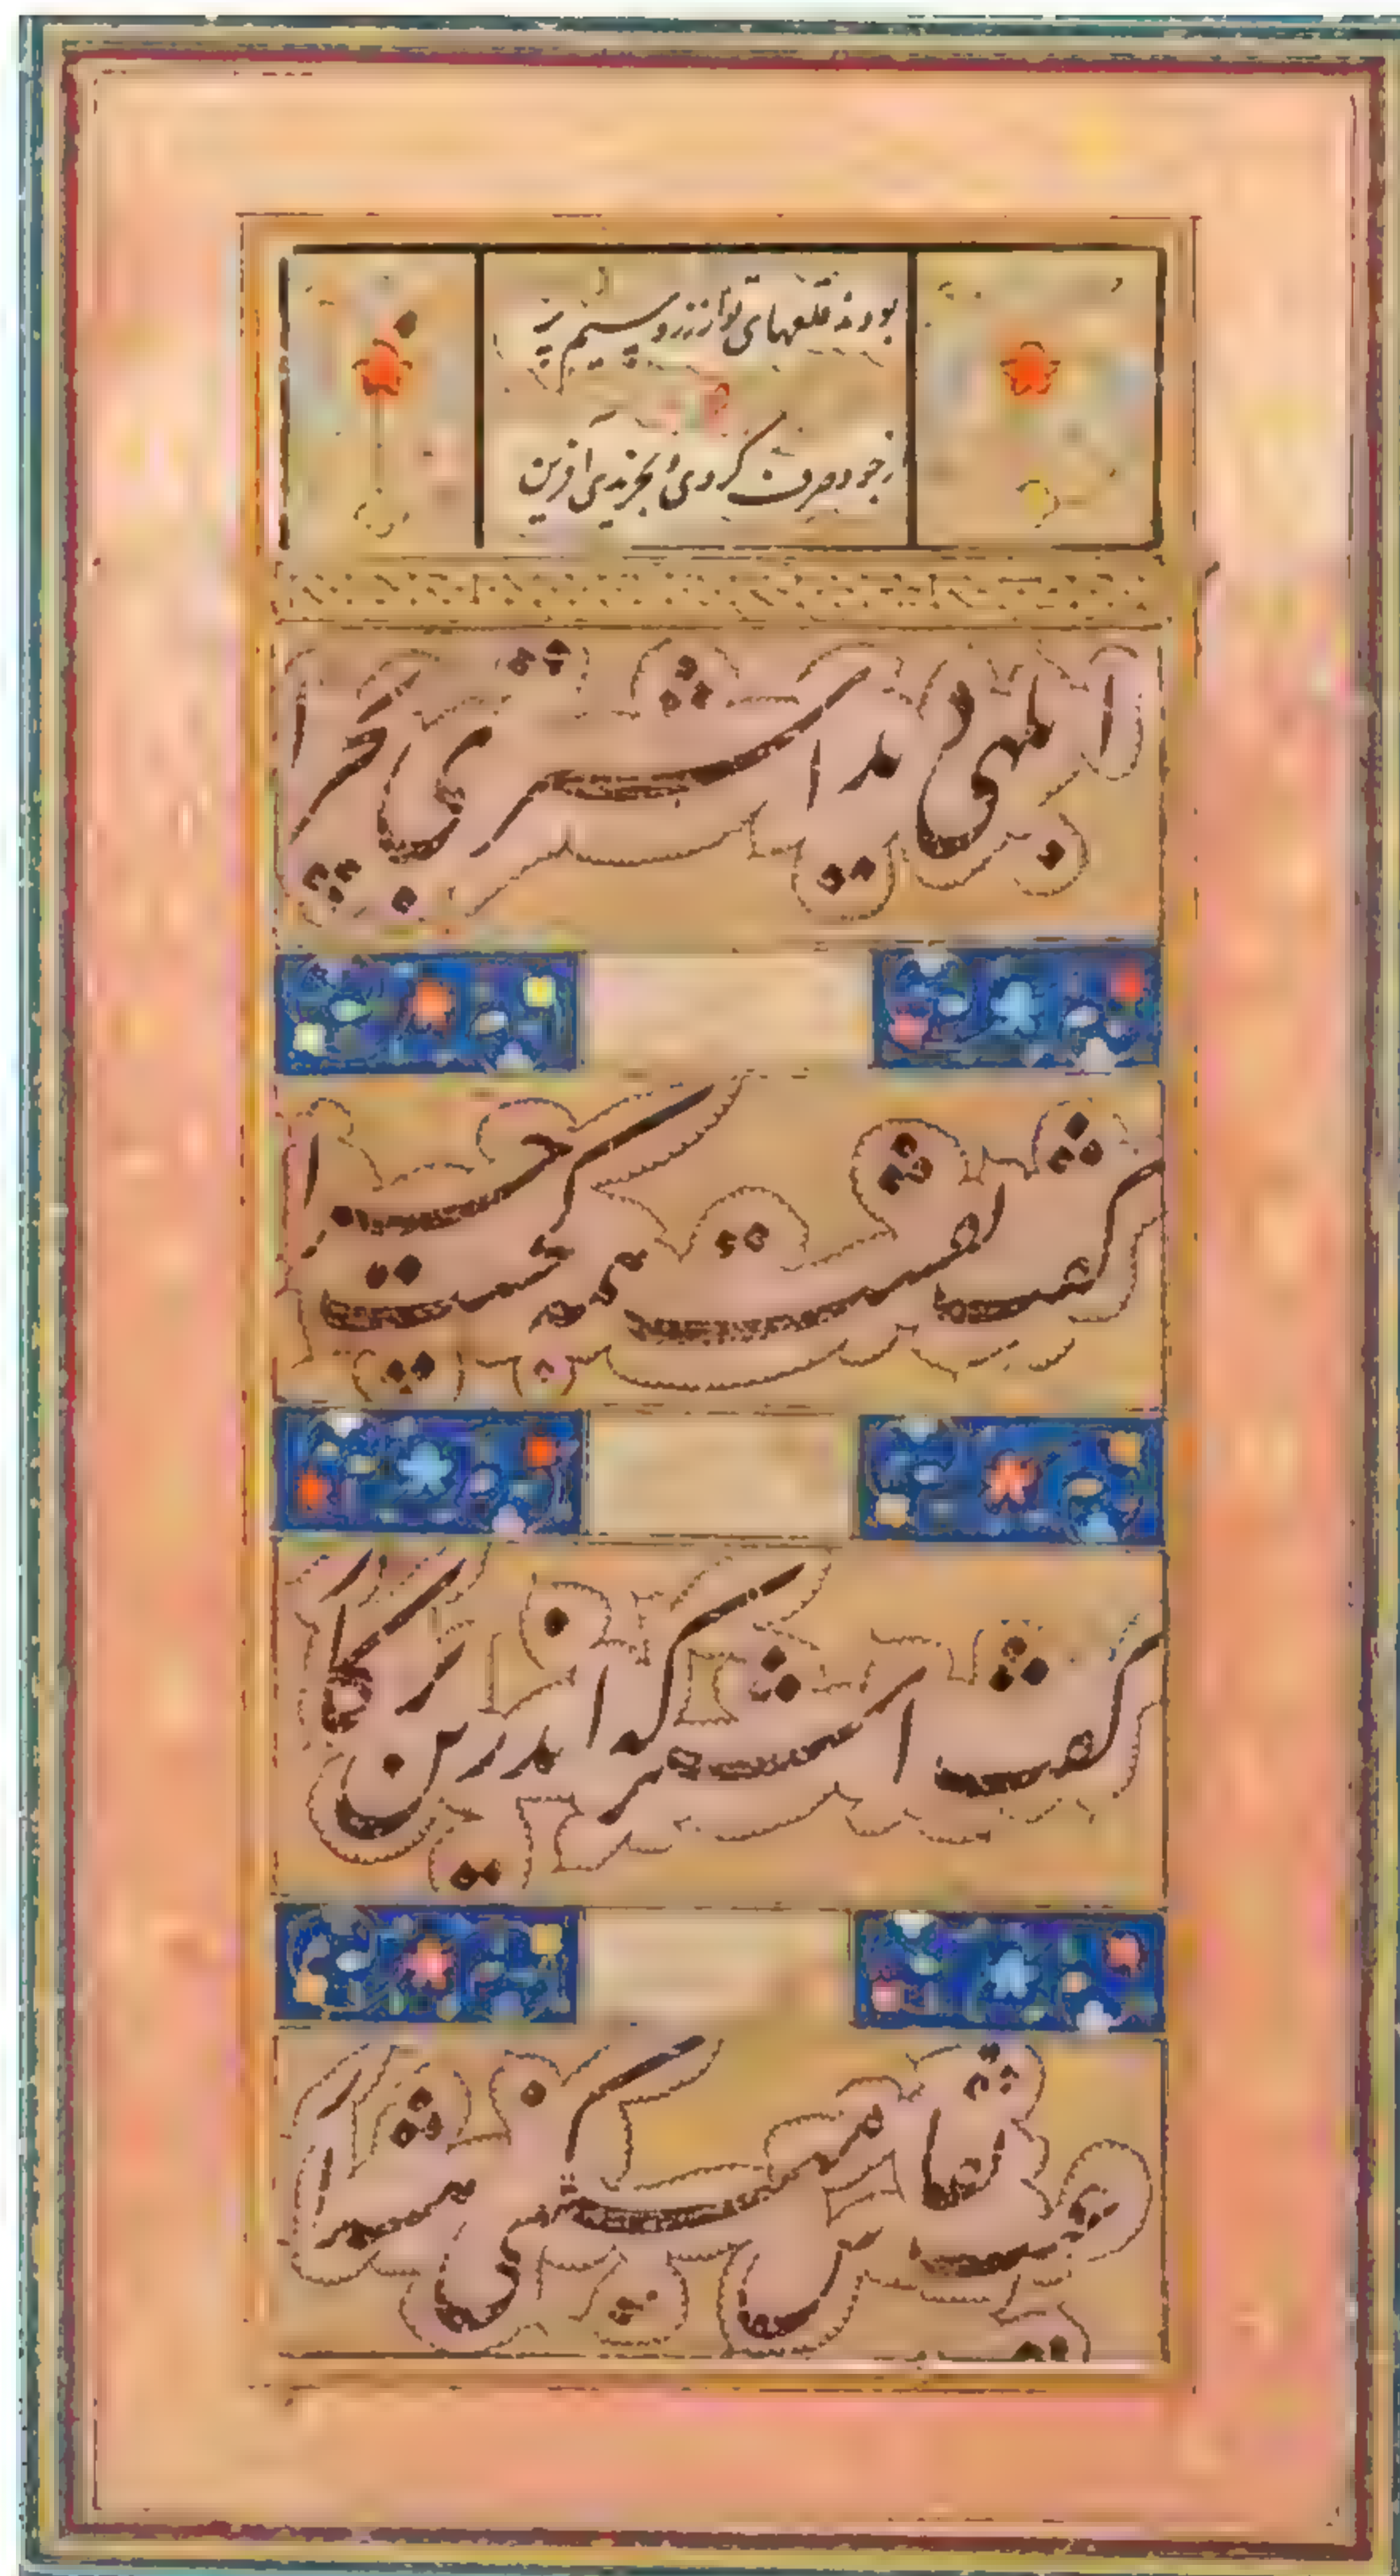 بودند قلعهای تو از زر و سیم پر
از جود صرف کردی و بخریدی آفرین
ابلهی دید اشتری بچرا
گفت نقشت همه کژست چرا
گفت اشتر که اندرین پیکار
عیب نقاش میکنی هشدار